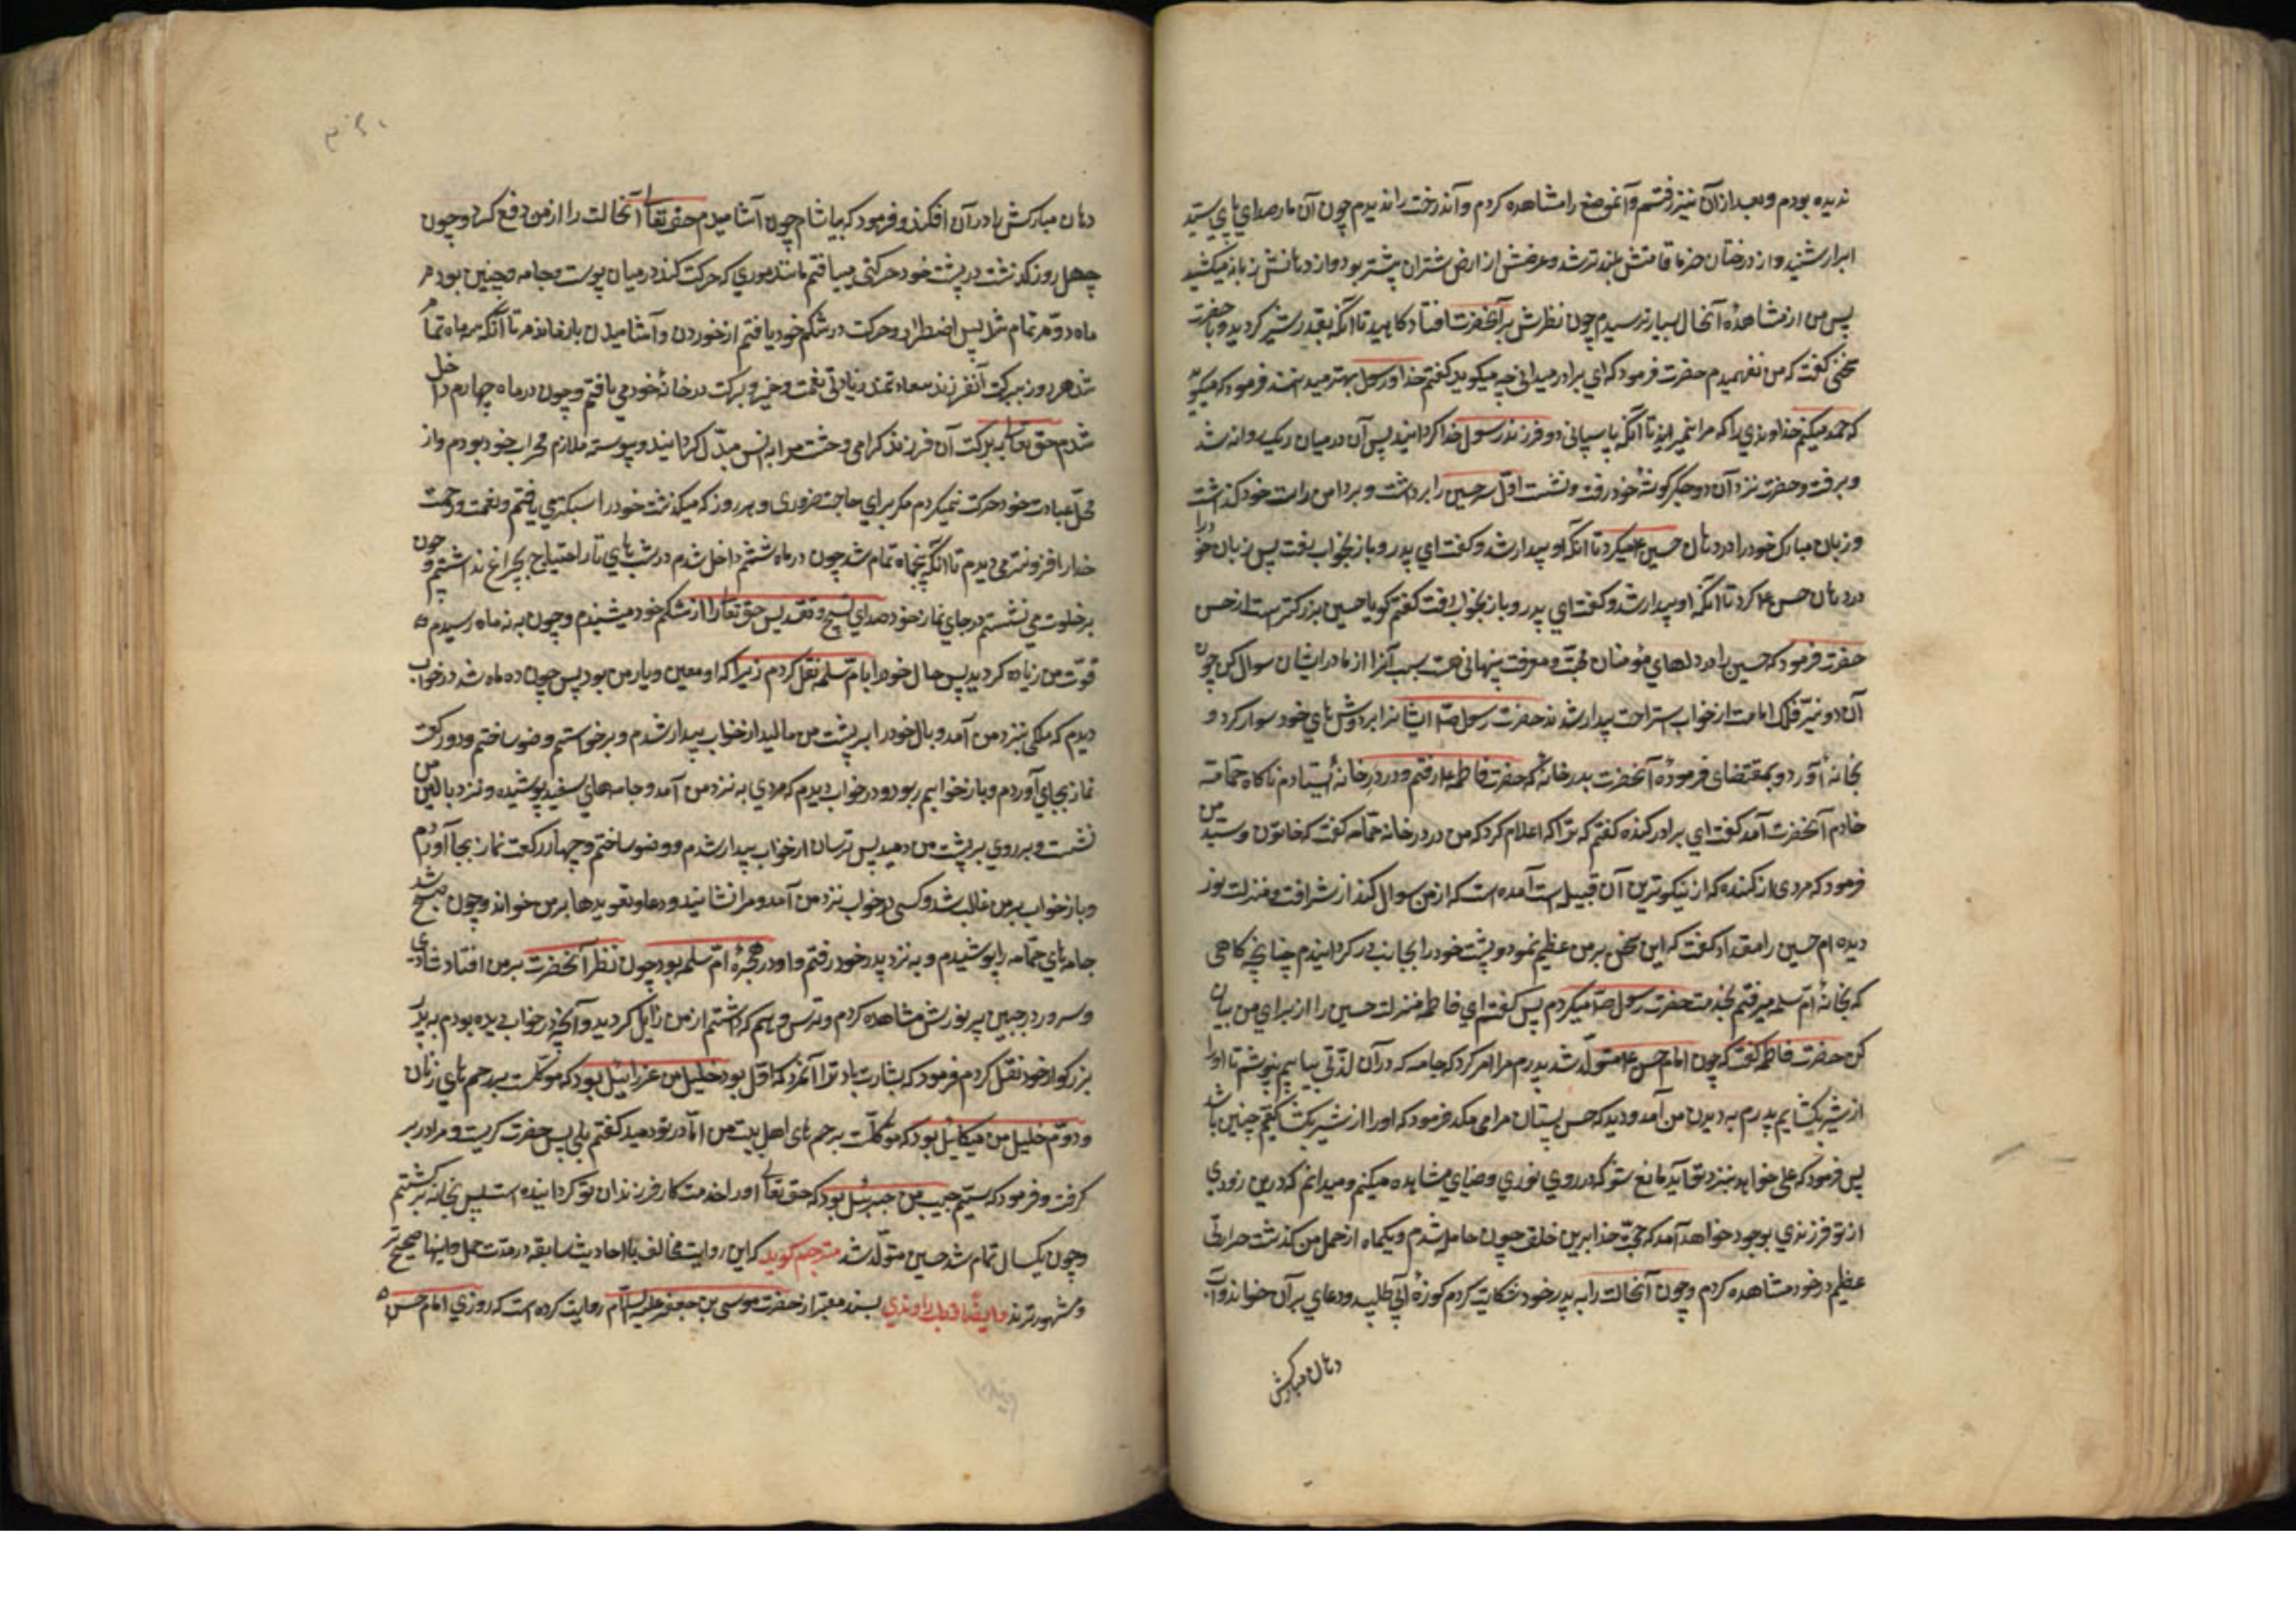 ندیده بودم و بعد از آن نیز رفتم و آنموضع را مشاهده کردم و آندرخت را ندیدم چون آن مار صدای پای سید
ابرار شنید و از درختان خرما قامتش بلندتر شد و عرضش از ارض شتران بیشتر بود و از دهانش زبانه میکشید
پس من از مشاهدهٔ آنحال بسیار ترسیدم چون نظرش بر آنحضرت افتاد کاهید تا آنکه بقدر شیر کردید و با حضرت
سخنی کفت که من نفهمیدم حضرت فرمود که ای برادر میدانی چه میکوید کفتم خدا و رسول بهتر میدانند فرمود که میکوید
که حمد میکنم خداوندی را که مرا نمیرانید تا آنکه پاسبانی دو فرزند رسول خدا کردانید پس آن در میان ریک روانه شد
و برفت و حضرت نزد آن دو جکر کوشهٔ خود رفت و نشست اوّل سر حسین را برداشت و بر دامن راست خود کذاشت
و زبان مبارک خود را در دهان حسین ع میکرد تا آنکه او بیدار شد و کفت ای پدر و باز بخواب رفت پس زبان خود را
در دهان حسن ع کرد تا آنکه او بیدار شد و کفت ای پدر و باز بخواب رفت کفتم کویا حسین بزرکتر است از حسن
حضرت فرمود که حسین را در دلهای مؤمنان محبّت و معرفت پنهانی هست سبب آنرا از مادر ایشان سوال کن چون
آن دو نیّر فلک امامت از خواب استراحت بیدار شدند حضرت رسول صلّ ایشانرا بر دوش های خود سوار کرد و
بخانه آورد و بمقتضای فرمودهٔ آنحضرت بدر خانه حضرت فاطمه ع رفتم و در در خانه ایستادم ناکاه حمّامه
خادم آنحضرت آمد کفت ای برادر کنده کفتم که ترا که اعلام کرد که من در در خانه‌ام حمّامه کفت که خاتون و سیّد من
فرمود که مردی از کنده که از نیکوترین آن قبیله است آمده است که از من سوال کند از شرافت و منزلت نور
دیده ام حسین را مقداد کفت که این سخن بر من عظیم نمود و پشت خود را بجانب در کردانیدم چنانچه کاهی
که بخانهٔ امّ سلمه میرفتم بخدمت حضرت رسول صلّ میکردم پس کفتم ای فاطمه منزلت حسین را از برای من بیان
کن حضرت فاطمه کفت که چون امام حسن ع متولّد شد پدرم مرا امر کرد که جامه که در آن لذّتی بیابم نپوشم تا او را
از شیر بکشایم پدرم به دیدن من آمد و دید که حسن پستان مرا می مکد فرمود که او را از شیر بکشا کفتم چنین باشد
پس فرمود که علی خواهد نزد تو آید مانع مشو که در روی نوری و ضیای مشاهده میکنم و میدانم که درین زودی
از تو فرزندی بوجود خواهد آمد که حجّت خدا برین خلق چون حامله شدم و یکماه از حمل من کذشت حرارتی
عظیم در خود مشاهده کردم و چون آنحالت را به پدر خود شکایت کردم کوزهٔ آبی طلبید و دعای بر آن خواند و آب
دهان مبارکش
دهان مبارکش را در آن افکند و فرمود که بیاشام چون آشامیدم حق تعالی آنحالت را از من دفع کرد و چون
چهل روز کذشت در پشت خود حرکتی میافتم مانند موری که حرکت کند در میان پوست و جامه و چنین بودم
ماه دوّم تمام شد پس اضطراب و حرکت در شکم خود یافتم از خوردن و آشامیدن باز ماندم تا آنکه سر ماه تمام
شد هر روز ببرکت آنفرزند سعادتمند زیادتی نعمت و خیر و برکت در خانهٔ خود می یافتم و چون در ماه چهارم داخل
شدم حق تعالی به برکت آن فرزند کرامی وحشت مرا به انس مبدّل کردانید و پیوسته ملازم محراب خود بودم و از
محلّ عبادت خود حرکت نمیکردم مکر برای حاجت ضروری و هر روز که میکذشت خود را سبکتر می یافتم و نعمت و رحمت
خدا را افزونتر می دیدم تا آنکه پنجماه تمام شد چون در ماه ششم داخل شدم در شب های تار احتیاج بچراغ نداشتم و چون
بر خلوت می نشستم در جای نماز خود صدای تسبیح و تقدیس حق تعالی را از شکم خود میشنیدم و چون به نه ماه رسیدم
قوّت من زیاده کردید پس حال خود را بامّ سلمه نقل کردم زیرا که او معین و یار من بود پس چون ده ماه شد در خواب
دیدم که ملکی بنزد من آمد و بال خود را بر پشت من مالید از خواب بیدار شدم و برخواستم وضو ساختم و دو رکعت
نماز بجای آوردم و باز خوابم ربود و در خواب دیدم که مردی به نزد من آمد و جامه های سفید پوشیده و نزد بالین من
نشست و بر روی بر پشت من دمید پس ترسان از خواب بیدار شدم و وضو ساختم و چهار رکعت نماز بجا آوردم
و باز خواب بر من غالب شد و کسی در خواب نزد من آمد و مرا نشانید و دعا و تعویدها بر من خواند و چون صبح شد
جامه های حمّامه را پوشیدم و به نزد پدر خود رفتم و او در حجرهٔ امّ سلمه بود چون نظر آنحضرت بر من افتاد شادی
و سرور در جبین پر نورش مشاهده کردم و ترس و بیم که داشتم از من زایل کردید و آنچه در خواب دیده بودم به پدر
بزرکوار خود نقل کردم فرمود که بشارت باد ترا آنمرد که اوّل بود خلیل من عزرائیل بود که موکّلست بر رحم های زنان
و دوّم خلیل من میکائیل بود که موکّلست بر رحم های اهل بیت من امّا در تو دمید کفتم بلی پس حضرت کریست و مرا در بر
کرفت و فرمود که سیّم حبیب من جبرئیل بود که حق تعالی او را خدمت کار فرزندان تو کردانیده است پس بخانه برکشتم
و چون یکسال تمام شد حسین متولّد شد مترجم کوید که این روایت مخالف با احادیث سابقه در مدّت حمل و اینها صحیح تر
و مشهورترند و ایضا قطب راوندی بسند معتبر از حضرت موسی بن جعفر علیه السّلام روایت کرده است که روزی امام حسن